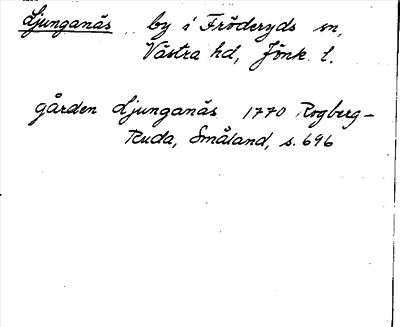 Ljunganäs by i Fröderyds sn,
Västra hd, Jönk. l.
gården Ljunganäs 1770 Rogberg-
Ruda, Småland, s. 696